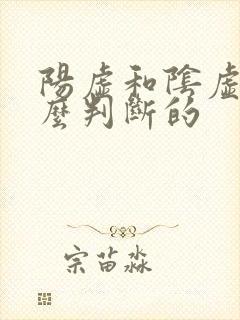 陽虛和陰虛
麼判斷的
宗苗淼